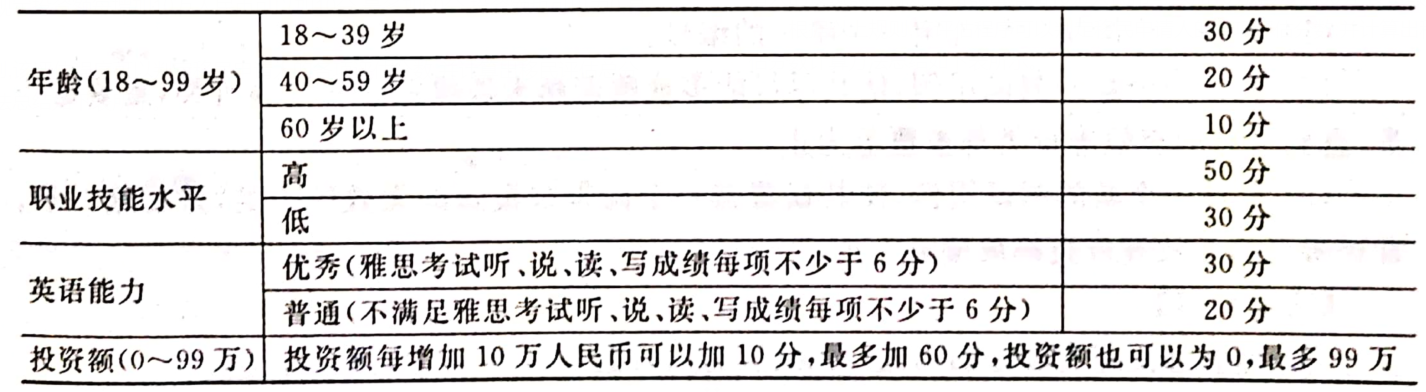 年龄(18～99 岁)
18～39 岁
30 分
40～59 岁
20 分
60 岁以上
10 分
职业技能水平
高
50 分
低
30 分
英语能力
优秀(雅思考试听、说、读、写成绩每项不少于 6 分)
30 分
普通(不满足雅思考试听、说、读、写成绩每项不少于 6 分)
20 分
投资额(0～99 万)
投资额每增加 10 万人民币可以加 10 分,最多加 60 分,投资额也可以为 0,最多 99 万